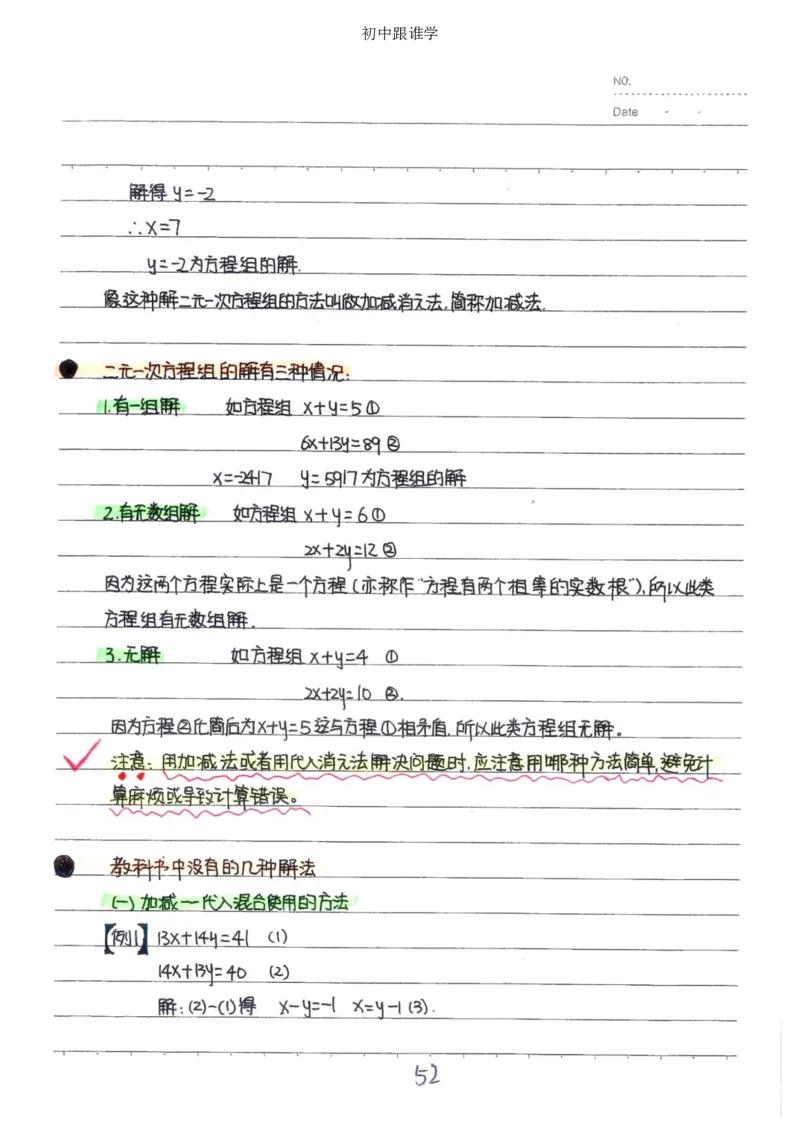 初中跟谁学
NO.
Date
解得 y=-2
∴x=7
y=-2为方程组的解.
象这种解二元一次方程组的方法叫做加减消元法,简称加减法.
二元一次方程组的解有三种情况:
1.有一组解 如方程组 x+y=5①
6x+13y=89②
x=-24/7 y=59/7为方程组的解
2.有无数组解 如方程组 x+y=6①
2x+2y=12②
因为这两个方程实际上是一个方程(亦称作"方程有两个相等的实数根"),所以此类
方程组有无数组解.
3.无解 如方程组 x+y=4 ①
2x+2y=10 ②.
因为方程②化简后为x+y=5这与方程①相矛盾,所以此类方程组无解。
注意:用加减法或者用代入消元法解决问题时,应注意用哪种方法简单,避免计
算麻烦或导致计算错误。
教科书中没有的几种解法
(一)加减一代入混合使用的方法
【例1】13x+14y=41 (1)
14x+13y=40 (2)
解:(2)-(1)得 x-y=-1 x=y-1 (3).
52